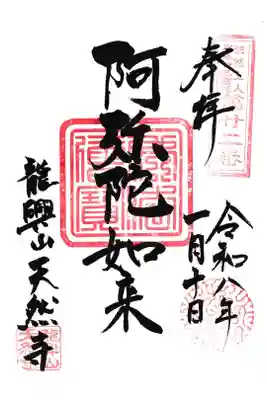 奉拝
令和八年
一月十日
阿弥陀如来
龍興山天然寺